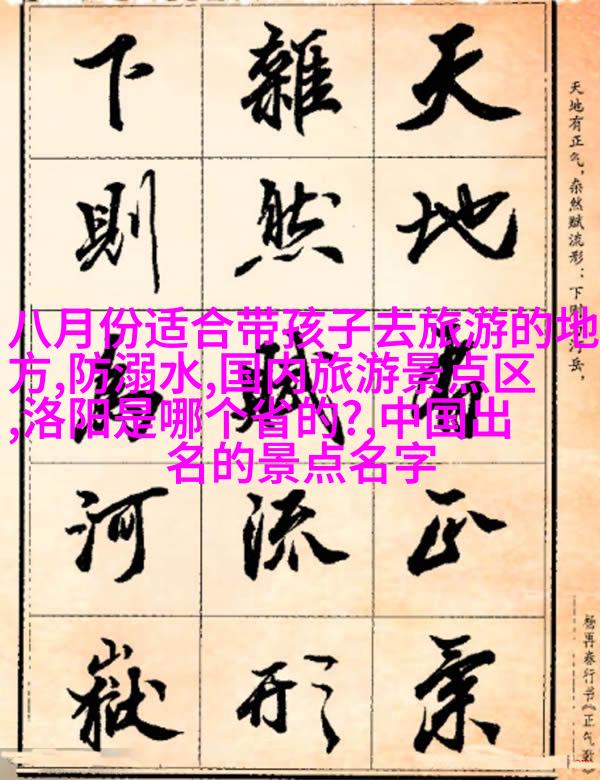 八月份适合带孩子去旅游的地
方,防溺水,国内旅游景点区
,洛阳是哪个省的?,中国出
名的景点名字
天地有正气，杂然赋流形：下则为河岳，
天地有正氣
雜然賦流形
下則為河嶽
杨再春行书《正气歌》